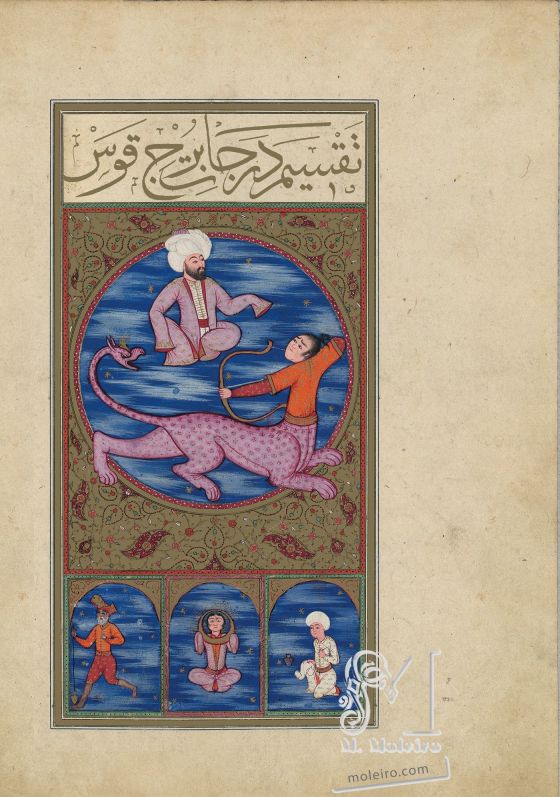 تقسیم درجات برج قوس
M. Moleiro
moleiro.com